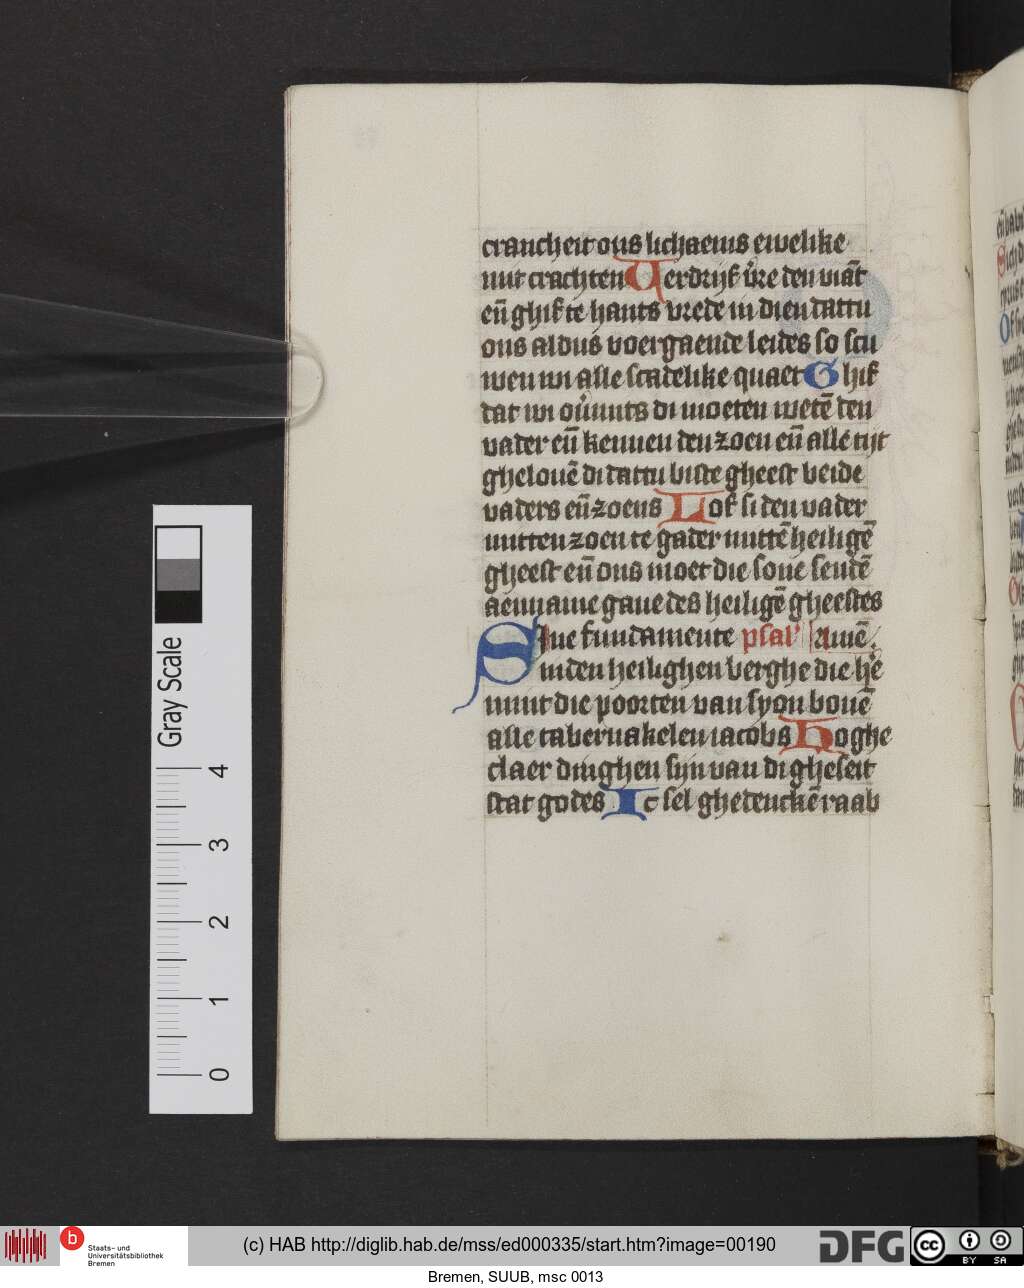 crancheit ons lichaems ewelike
mit crachten Verdrijf v̉re den viāt
eñ ghif te hants vrede in dien dattu
ons aldus voergaende leides so scu
wen wi alle scadelike quaet Ghif
dat wi ou̓mits di moeten wetē den
vader eñ kennen den zoen eñ alle tijt
ghelouē di dattu biste gheest beide
vaders eñ zoens Lof si den vader
mitten zoen te gader mittē heiligē
gheest eñ ons moet die sone sendē
aenname gaue des heiligē gheestes
Sine fundamente psal' Amē.
in den heilighen berghe die he̓
mint die poorten van syon bouē
alle tabernakelen iacobs Hoghe
claer dinghen sijn van di gheseit
stat godes Ic sel ghedenckē raab
Gray Scale
4
3
2
1
0
b
Staats- und
Universitätsbibliothek
Bremen
(c) HAB http://diglib.hab.de/mss/ed000335/start.htm?image=00190
DFG
cc
BY SA
Bremen, SUUB, msc 0013